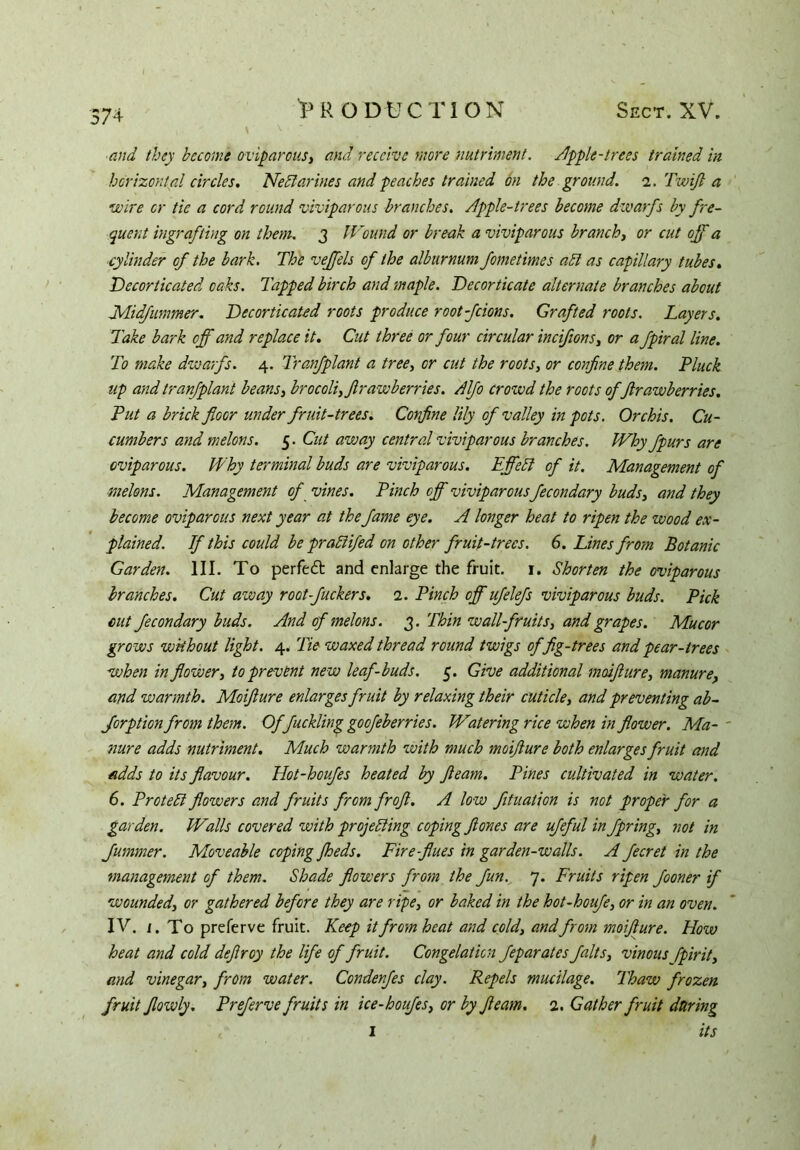 374 PRODUCTION Sect. XV.
and they become oviparous, and receive more nutriment. Apple-trees trained in
horizontal circles. Nectarines and peaches trained on the ground. 2. Twiſt a
wire or tie a cord round viviparous branches. Apple-trees become dwarfs by fre-
quent ingrafting on them. 3 Wound or break a viviparous branch, or cut off a
cylinder of the bark. The veſſels of the alburnum ſometimes act as capillary tubes.
Decorticated oaks. Tapped birch and maple. Decorticate alternate branches about
Midſummer. Decorticated roots produce root-ſcions. Grafted roots. Layers.
Take bark off and replace it. Cut three or four circular inciſions, or a ſpiral line.
To make dwarfs. 4. Tranſplant a tree, or cut the roots, or confine them. Pluck
up and tranſplant beans, brocoli, ſtrawberries. Alſo crowd the roots of ſtrawberries.
Put a brick floor under fruit-trees. Confine lily of valley in pots. Orchis. Cu-
cumbers and melons. 5. Cut away central viviparous branches. Why ſpurs are
oviparous. Why terminal buds are viviparous. Effect of it. Management of
melons. Management of vines. Pinch off viviparous ſecondary buds, and they
become oviparous next year at the ſame eye. A longer heat to ripen the wood ex-
plained. If this could be practiſed on other fruit-trees. 6. Lines from Botanic
Garden. III. To perfect and enlarge the fruit. 1. Shorten the oviparous
branches. Cut away root-ſuckers. 2. Pinch off uſeleſs viviparous buds. Pick
out ſecondary buds. And of melons. 3. Thin wall-fruits, and grapes. Mucor
grows without light. 4. Tie waxed thread round twigs of fig-trees and pear-trees
when in flower, to prevent new leaf-buds. 5. Give additional moiſture, manure,
and warmth. Moiſture enlarges fruit by relaxing their cuticle, and preventing ab-
ſorption from them. Of ſuckling gooſeberries. Watering rice when in flower. Ma-
nure adds nutriment. Much warmth with much moiſture both enlarges fruit and
adds to its flavour. Hot-houſes heated by ſteam. Pines cultivated in water.
6. Protect flowers and fruits from froſt. A low ſituation is not proper for a
garden. Walls covered with projecting coping ſtones are uſeful in ſpring, not in
ſummer. Moveable coping ſheds. Fire-flues in garden-walls. A ſecret in the
management of them. Shade flowers from the ſun. 7. Fruits ripen ſooner if
wounded, or gathered before they are ripe, or baked in the hot-houſe, or in an oven.
IV. 1. To preſerve fruit. Keep it from heat and cold, and from moiſture. How
heat and cold deſtroy the life of fruit. Congelation ſeparates ſalts, vinous ſpirit,
and vinegar, from water. Condenſes clay. Repels mucilage. Thaw frozen
fruit ſlowly. Preſerve fruits in ice-houſes, or by ſteam. 2. Gather fruit during
I its